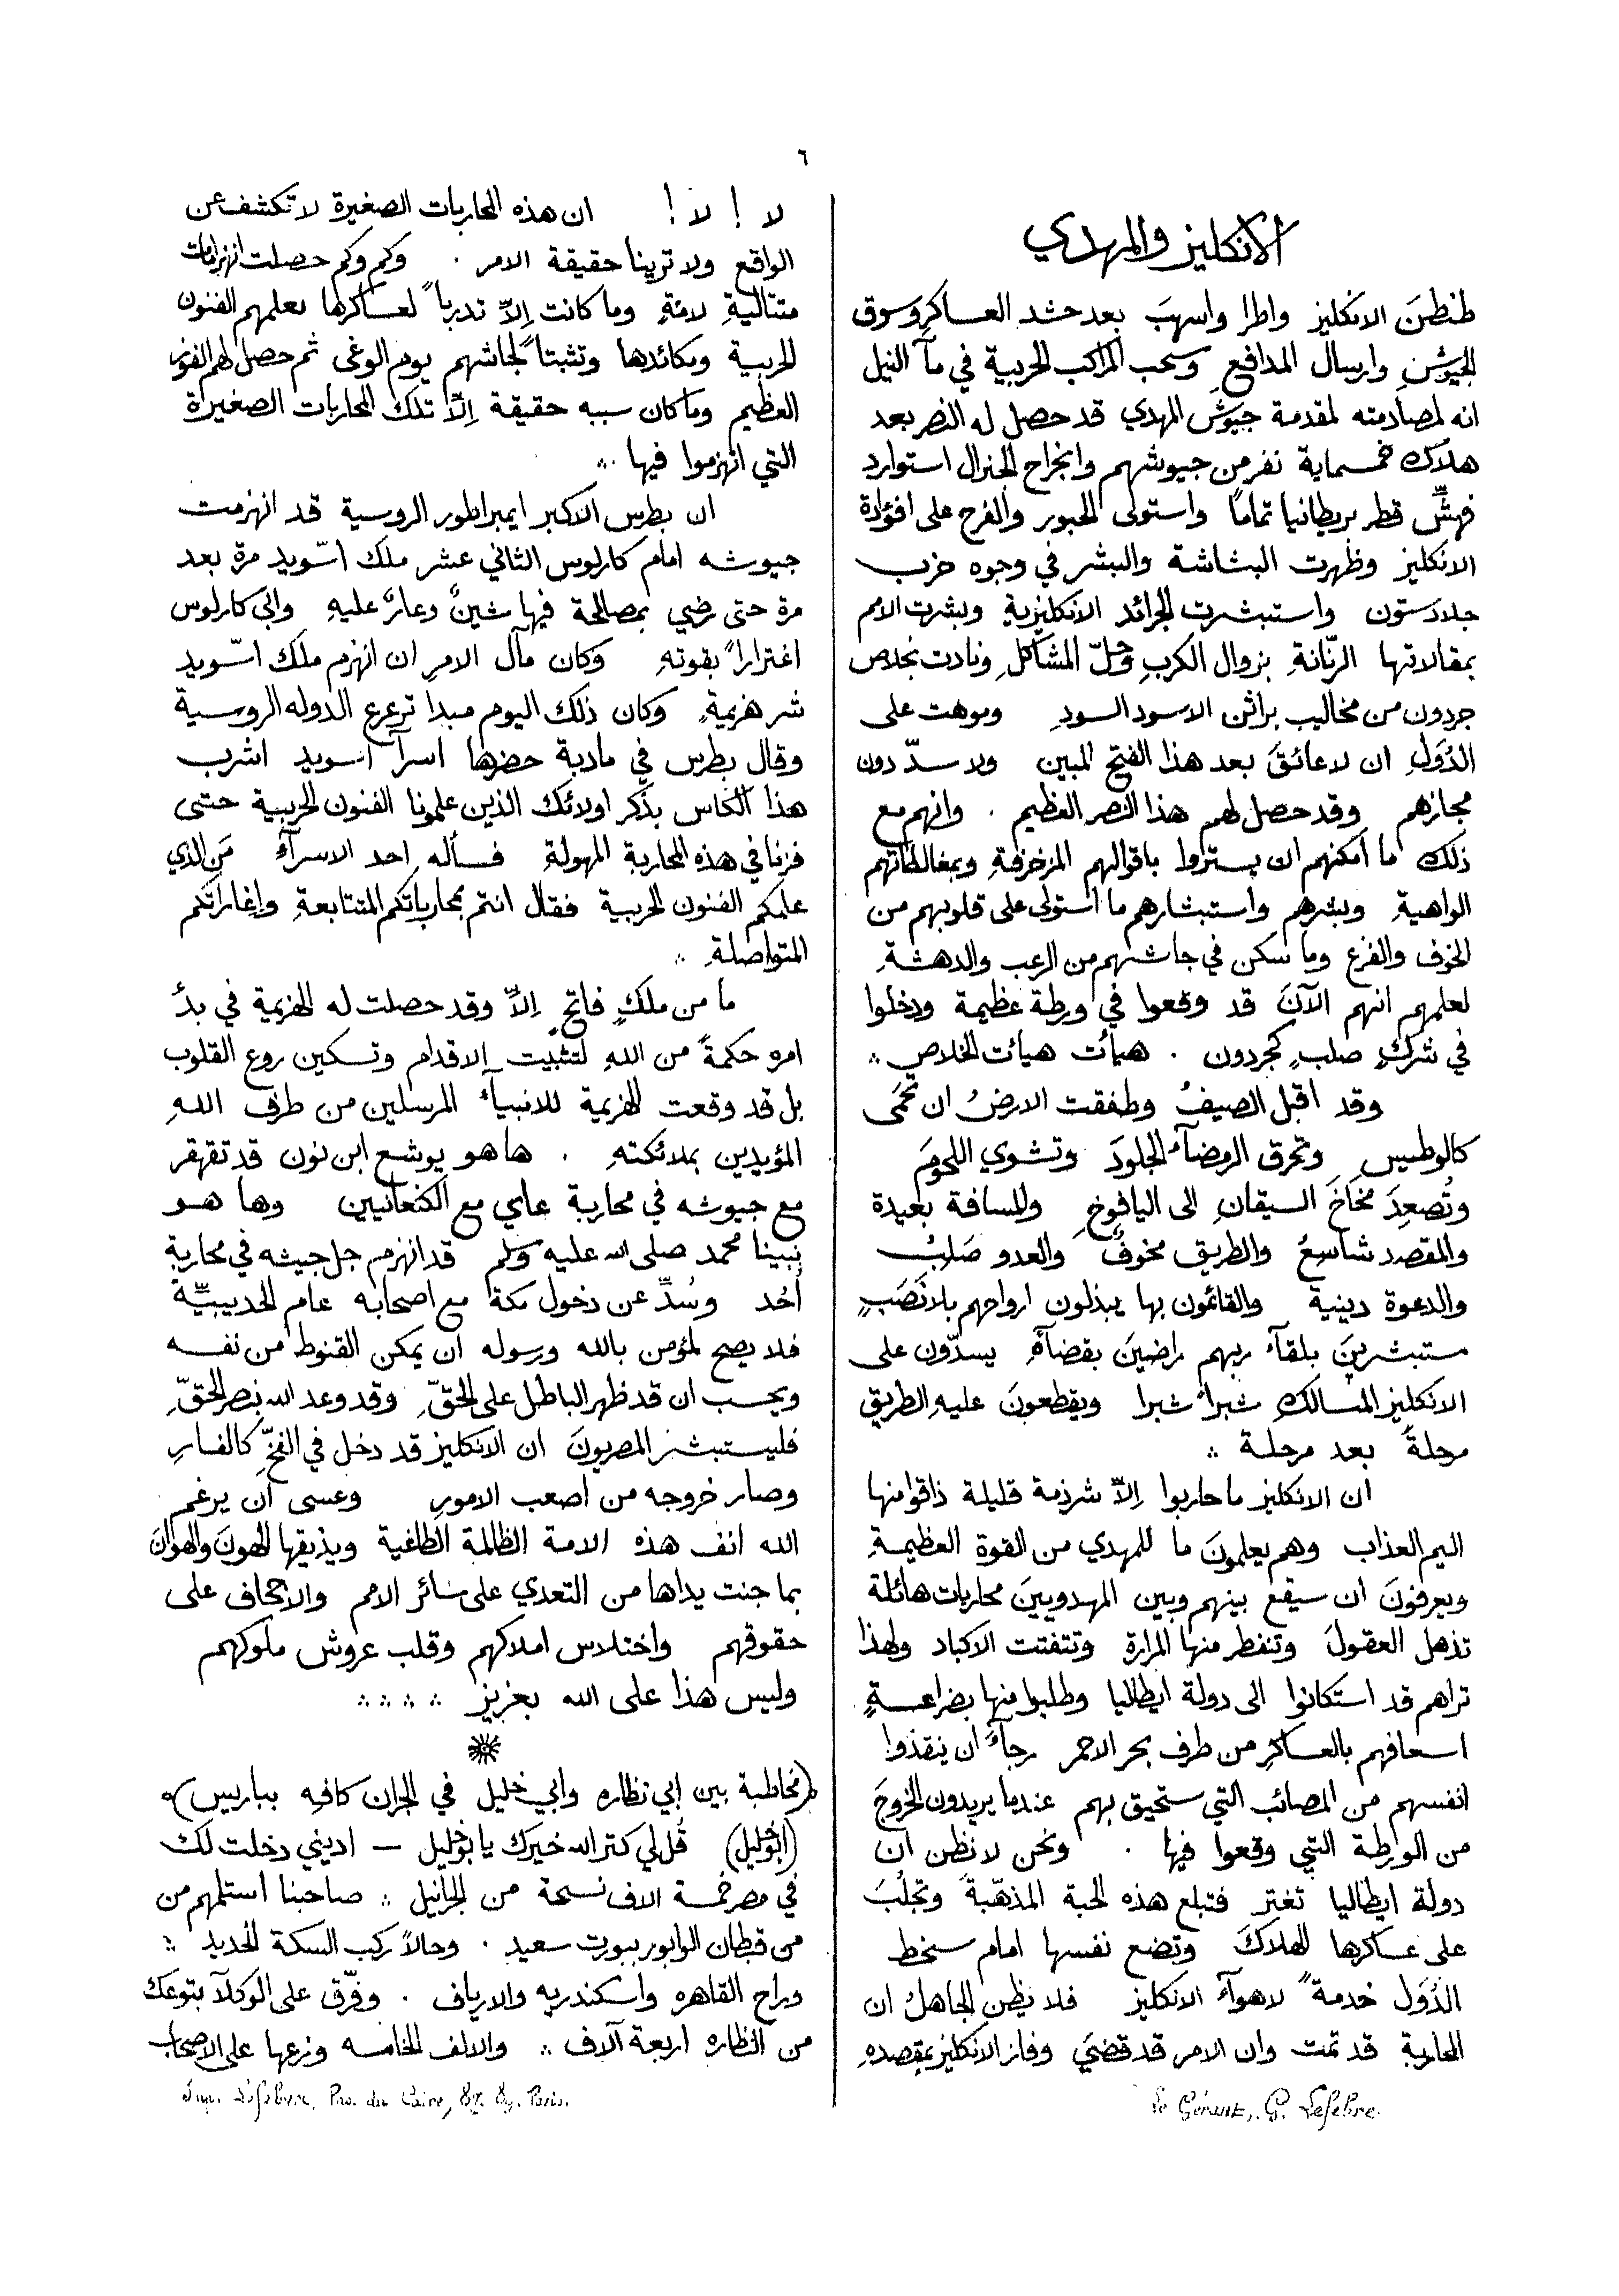 ٦
الانكليز والمهدي
طنطنَ الانكليز واطرا واسهبَ بعد حشد العساكر وسوق
الجيوش وارسال المدافع وسحب المراكب الحربية في مآ النيل
انه لمصادمته لمقدمة جيوش المهدي قد حصل له النصر بعد
هلاك خمسماية نفر من جيوشهم وانجراح الجنرال استوارد
فهشّ قطر بريطانيا تمامًا واستولى الحبور والفرح على افؤادة
الانكليز وظهرت البشاشة والبشر في وجوه حزب
جلادستون واستبشرت الجرائد الانكليزية وبشرت الامم
بمقالاتها الرنّانةِ بزوال الكربِ وحلّ المشاكلِ ونادت بخلاص
جردون من مخاليب براثن الاسود السودِ وموهت على
الدُوَلِ ان لاعائقَ بعد هذا الفتح المبين ولا سدّ دون
مجازهم وقد حصل لهم هذا النصر العظيم . وانهم مع
ذلك ما امكنهم ان يستروا باقوالهم المزخرفةِ وبمغالطاتهم
الواهيةِ وبشرهم واستبشارهم ما استولى على قلوبهم من
الخوف والفزع وما سكن في جاشهم من الرعب والدهشةِ
لعلمهم انهم الآنَ قد وقعوا في ورطة عظيمة ودخلوا
في شركٍ صلبٍ كجردون . هيأت هيأت الخلاص ∴
وقد اقبل الصيفُ وطفقت الارضُ ان تحمَى
كالوطيس وتحرق الرمضآءُ الجلودَ وتشوي اللحومَ
وتُصعِدَ مخاخَ السيقانِ الى اليافوخِ والمسافة بعيدة
والمقصد شاسعُ والطريق مخوفٌ والعدو صَلبُ
والدعوة دينية والقائمون بها يبذلون ارواحهم بلا نَصَبٍ
مستبشرينَ بلقآءِ ربهم راضينَ بقضآهِ يسدّون على
الانكليز المسالك شبراً شبرا ويقطعونَ عليهِ الطريق
مرحلةً بعد مرحلة ∴
ان الانكليز ما حاربوا اِلاّ شرذمة قليلة ذاقوا منها
اليم العذاب وهم يعلمونَ ما للمهدي من القوة العظيمةِ
ويعرفونَ ان سيقع بينهم وبين المهدويينَ محاربات هائلة
تذهل العقولَ وتنفطر منها المرارة وتتفتت الاكباد ولهذا
تراهم قد استكانوا الى دولة ايطاليا وطلبوا منها بضراعةٍ
اسعافهم بالعساكرِ من طرف بحر الاحمر رجآءً ان ينقذوا
انفسهم من المصائب التي ستحيق بهم عندما يريدون الخروجَ
من الورطة التي وقعوا فيها . ونحن لا نظن ان
دولة ايطاليا تغتر فتبلع هذه الحبة المذهّبةَ وتجلُبَ
على عساكرها الهلاكَ وتضع نفسها امام سخط
الدُوَل خدمةً لاهوآء الانكليز فلا يظن الجاهلُ ان
المحاربة قد تمت وان الامر قد قضيَ وفاز الانكليز بمقصدهِ
Le Gérant, G. Lefebre.
لا ! لا ! ان هذه المحاربات الصغيرة لا تكشف عن
الواقع ولا ترينا حقيقة الامر . وكم وكم حصلت انهزامات
متتاليةِ لامةِ وما كانت اِلاّ تدرباً لعساكرها بعلمهم الفنون
الحربية ومكائدها وتثبتاً لجاشهم يوم الوغى ثم حصل لهم الفوز
العظيم وما كان سببه حقيقة اِلاّ تلك المحاربات الصغيرة
التي انهزموا فيها ∴
ان بطرس الاكبر ايمبراطور الروسية قد انهزمت
جيوشه امام كارلوس الثاني عشر ملك اسّويد مرة بعد
مرة حتى رضي بمصالحة فيها شينٌ وعارٌ عليهِ وابى كارلوس
اغتراراً بقوتهِ وكان مآل الامرِ ان انهزم ملك اسّويد
شر هزيمةٍ وكان ذلك اليوم مبدا ترعرع الدوله الروسية
وقال بطرس في مادبة حضرها اسرآ اسويد اشرب
هذا الكاس بذكر اولائك الذين علمونا الفنون الحربية حتى
فزنا في هذه المحاربة المهولةِ فسأله احد الاسرآءِ مَن الذي
علمكم الفنون الحربية فقال انتم بمحارباتكم المتتابعةِ واِغاراتكم
المتواصلةِ ∴
ما من ملكٍ فاتحٍ اِلاّ وقد حصلت له الهزيمة في بدأ
امره حكمةً من اللهِ لتثبيت الاقدام وتسكين روع القلوب
بل قد وقعت الهزيمة للانبيآء المرسلين من طرف اللهِ
المؤيدين بملائكتهِ . ها هو يوشع ابن نون قد تقهقر
مع جيوشه في محاربة عاي مع الكنعانيين وها هو
نبينا محمد صلى الله عليه وسلم قد انهزم جل جيشه في محاربة
اُحُد وسُدّ عن دخول مكة مع اصحابه عام الحديبيّة
فلا يصح لمؤمن بالله ورسوله ان يمكن القنوط من نفسه
ويحسب ان قد ظهر الباطل على الحقّ وقد وعد الله بنصر الحقّ
فليستبشر المصريونَ ان الانكليز قد دخل في الفخّ كالفارِ
وصار خروجه من اصعب الامورِ وعسى ان يرغم
الله انف هذه الامة الظالمة الطاغية ويذيقها الهونَ والهوانَ
بما جنت يداها من التعدي على سائر الامم والاجحاف على
حقوقهم واختلاس املاكهم وقلب عروش ملوكهم
وليس هذا على الله بعزيز ∴ ∴ ∴
(مخاطبة بين ابي نظاره وابي خليل في الجران كافيه بباريس)
(ابوخليل) قُل لي كتر الله خيرك يا بوخليل — اديني دخلت لك
في مصر خمسة الاف نسخة من الجرانيل ∴ صاحبنا استلمهم من
من قبطان الوابور ببورت سعيد . وحالاً ركب السكة الحديد ∴
وراح القاهره واسكندريه والارياف . وفرّق على الوكلآ بتوعك
من النظاره اربعة آلاف ∴ والالف الخامسه وزعها على الاصحاب
Imp. Lefebvre, Pas. du Caire, 87. 89. Paris.